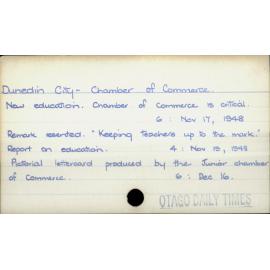 Dunedin City - Chamber of Commerce.
New education. Chamber of Commerce is critical.
6 : Nov 17, 1948
Remark resented. "Keeping teachers up to the mark."
Report on education. 4 : Nov 19, 1948
Pictorial lettercard produced by the Junior chamber
of Commerce. 6 : Dec 16.
OTAGO DAILY TIMES